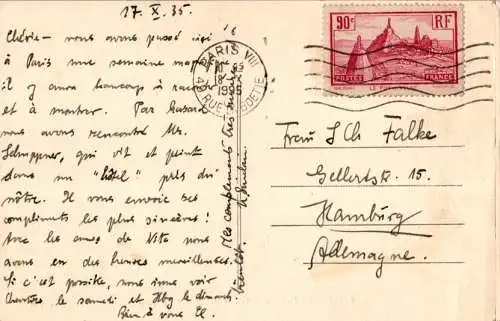 17. X. 35.
Chérie – nous avons passé ici
à Paris une semaine
il y aura beaucoup à
et à montrer. Par hasard
nous avons rencontré Mr.
qui vit et peint
dans un "hôtel" près du
nôtre. Il vous envoie ses
compliments les plus sincères!
Avec les amis de Vita nous
avons eu des heures merveilleuses.
Si c'est possible, nous irons voir
Chartres le samedi et Hbg le dimanche.
Bien à vous El.
Mes compliments très
PARIS VIII
1935
90c RF
POSTES FRANCE
Frau I Ch Falke
Gellertstr. 15.
Hamburg
Allemagne.